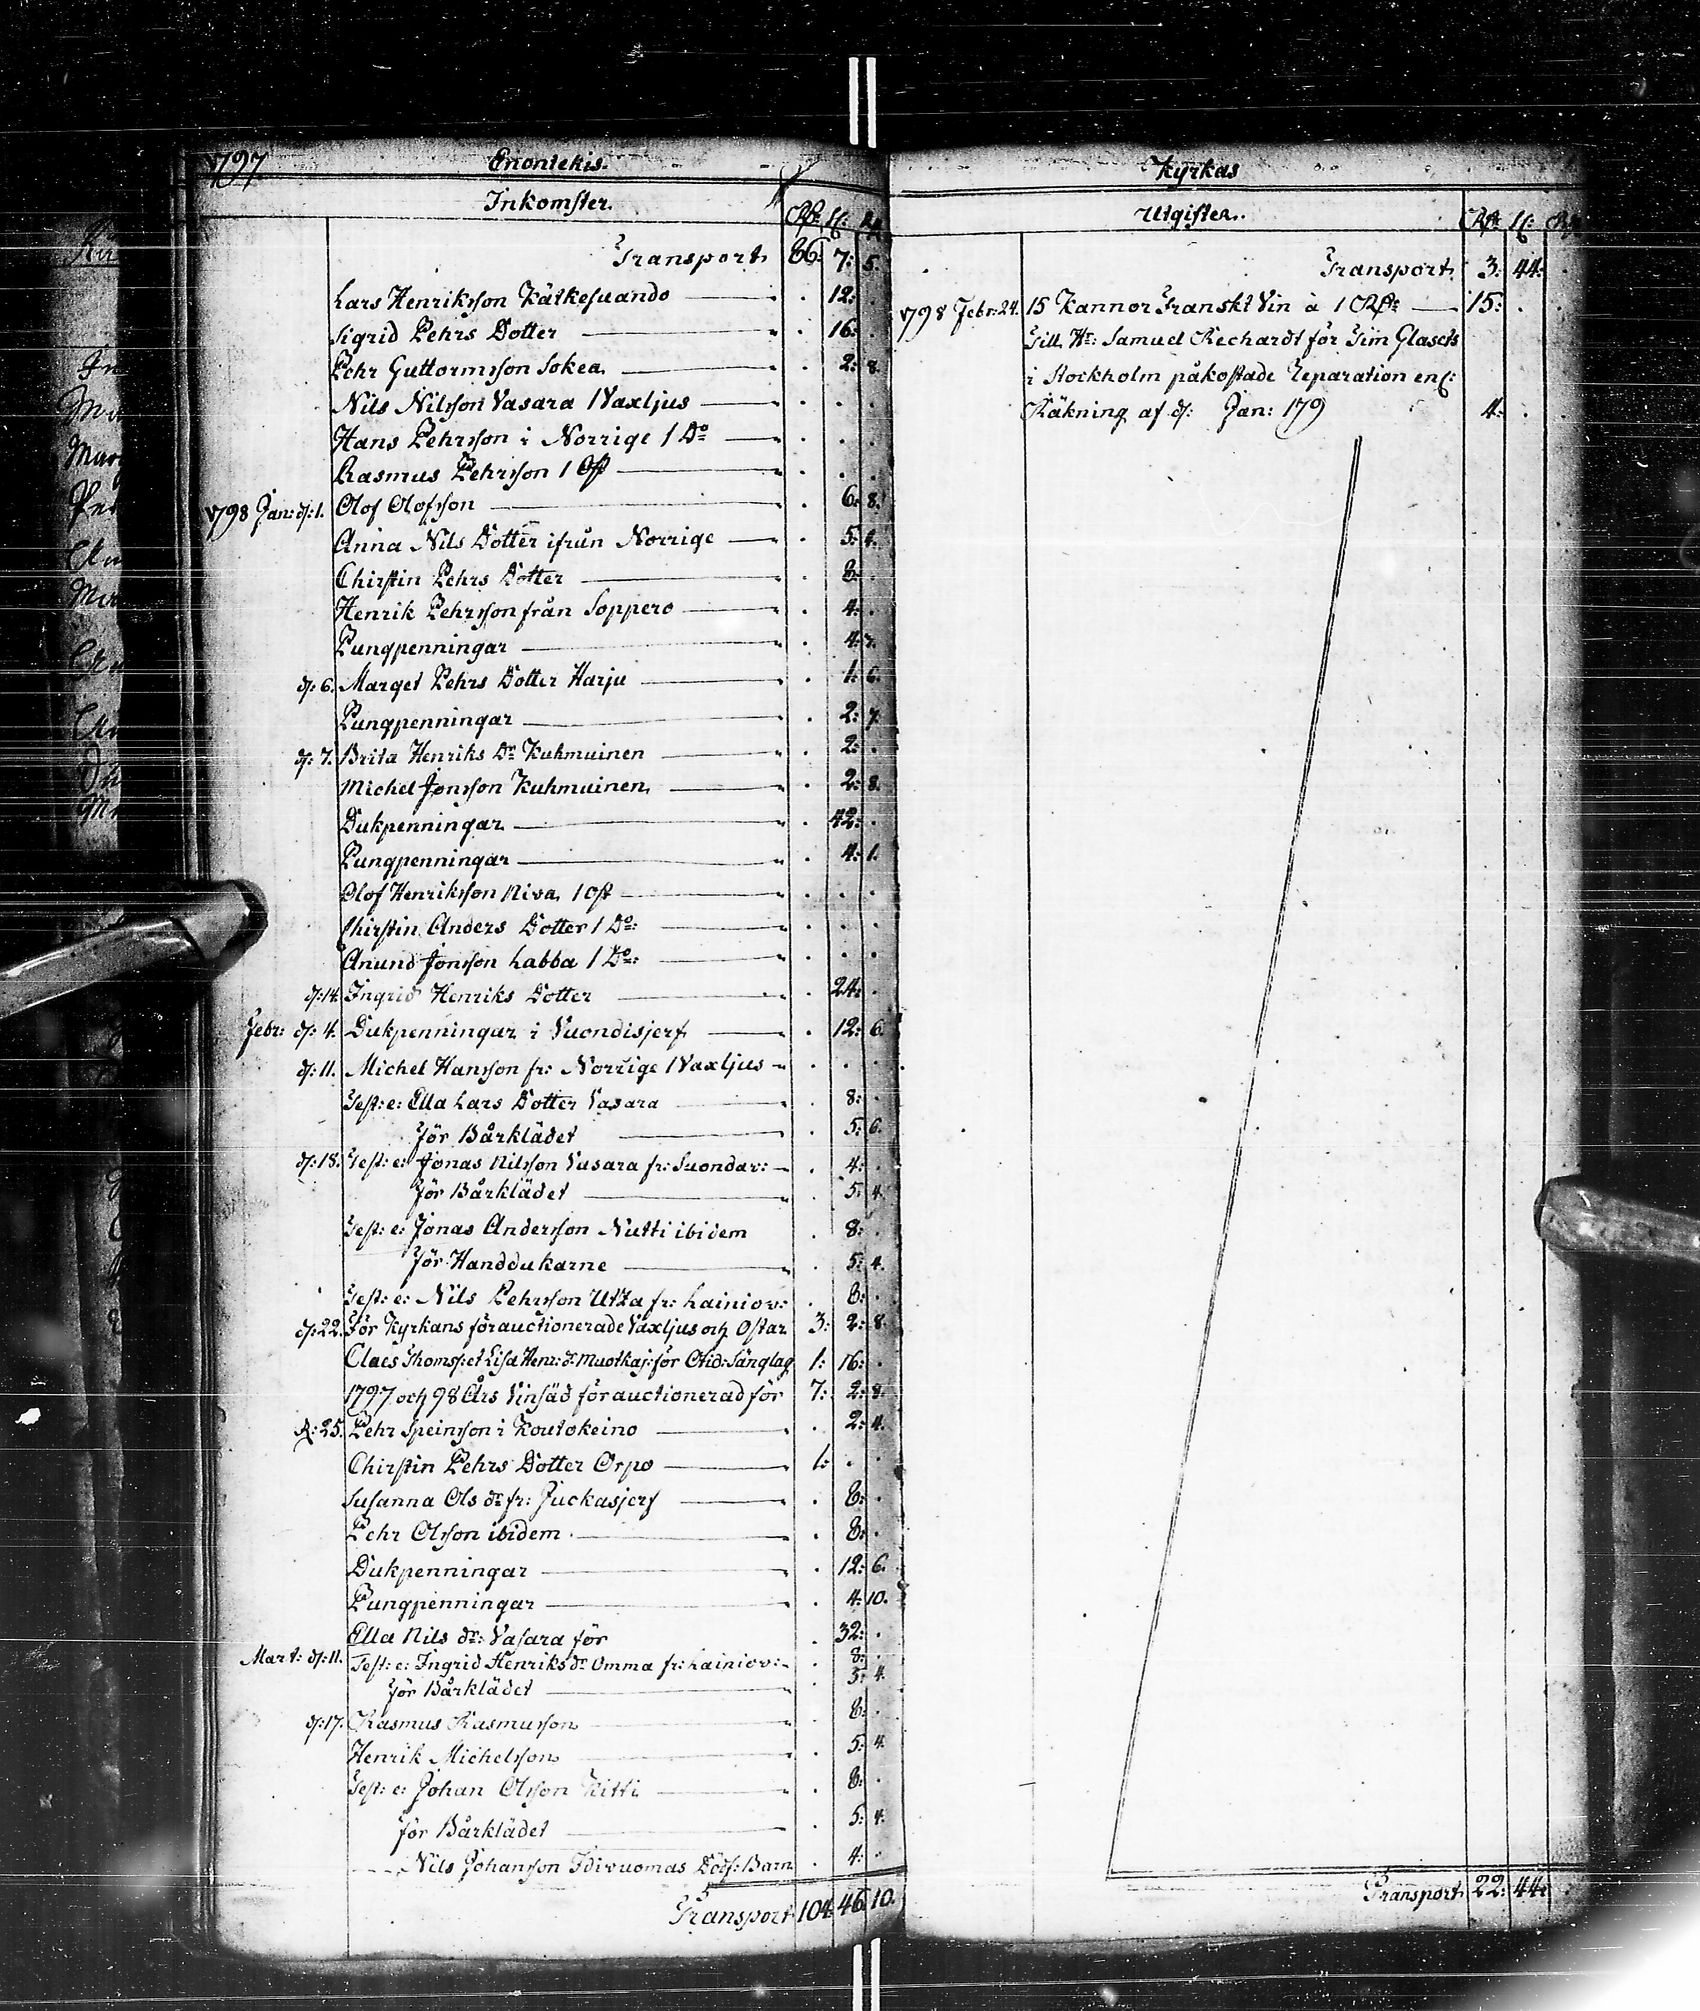 1797 Enontekis.
Inkomster. Rdr sk: Rst
Transport 86: 7: 5.
Lars Henriksson Kätkesuando . 12: .
Sigrid Pehrs Dotter . 16: .
Pehr Guttormsson Sokea . 2: 8.
Nils Nilsson Vasara 1 Vaxljus . . .
Hans Pehrsson i Norrige 1 Do . . .
Rasmus Pehrsson 1 Ost . . .
1798 Jan: d: 1. Olof Olofsson . 6: 8.
Anna Nils Dotter ifrån Norrige . 5: 4.
Chirstin Pehrs Dotter . 8: .
Henrik Pehrsson från Soppero . 4: .
Pungpenningar . 4: 7.
d: 6. Marget Pehrs Dotter Harju . 1: 6.
Pungpenningar . 2: 7.
d: 7. Brita Henriks Dr Kuhmuinen . 2: .
Michel Jonsson Kuhmuinen . 2: 8.
Dukpenningar . 42: .
Pungpenningar . 4: 1.
Olof Henriksson Niva 1 Ost . . .
Chirstin Anders Dotter 1 Do: . . .
Anund Jonsson Labba 1 Do: . . .
d: 14. Ingrid Henriks Dotter . 24: .
Febr: d: 4. Dukpenningar i Vuondisjerf . 12: 6.
d: 11. Michel Hansson fr: Norrige 1 Vaxljus . . .
Test: e: Ella Lars Dotter Vasara . 8: .
för Bårklädet . 5: 6.
d: 18. Test: e: Jonas Nilsson Vasara fr: Suondav: . 4: .
för Bårklädet . 5: 4.
Test: e: Jonas Andersson Nutti ibidem . 8: .
för Handdukarne . 5: 4.
Test: e: Nils Pehrsson Utza fr: Lainiov: . 8: .
d: 22. För Kyrkans förauctionerade Vaxljus och Ostar 3: 2: 8.
Claes Thomss: et Lisa Henr: dr Muotkaj: för Otid: Sänglag 1: 16: .
1797 och 98 Års Vinsäd förauctionerad för 7: 2: 8.
d: 25. Pehr Speinsson i Koutokeino . 2: 4.
Chirstin Pehrs Dotter Orpo 1: . .
Susanna Ols dr fr: Juckasjerf . 8: .
Pehr Olsson ibidem . 8: .
Dukpenningar . 12: 6.
Pungpenningar . 4: 10.
Ella Nils dr: Vasara för . 32: .
Mart: d: 11. Test: e: Ingrid Henriks dr Omma fr: Lainiov: . 8: .
för Bårklädet . 5: 4.
d: 17. Rasmus Rasmusson . 8: .
Henrik Michelsson . 5: 4.
Test: e: Johan Olsson Kitti . 8: .
för Bårklädet . 5: 4.
Nils Johansson Idivuomas Döds: Barn . 4: .
Transport 104: 46: 10.
Kyrkas
Utgifter. Rdr sk:
Transport 3: 44: .
1798 Febr: 24. 15 Kannor Franskt Vin à 1 Rdr 15: . .
Till Hr: Samuel Rechardt för Tim Glasets
i Stockholm påkostade Reparation enl:
Räkning af d: Jan: 179 4: . .
Transport 22: 44: .